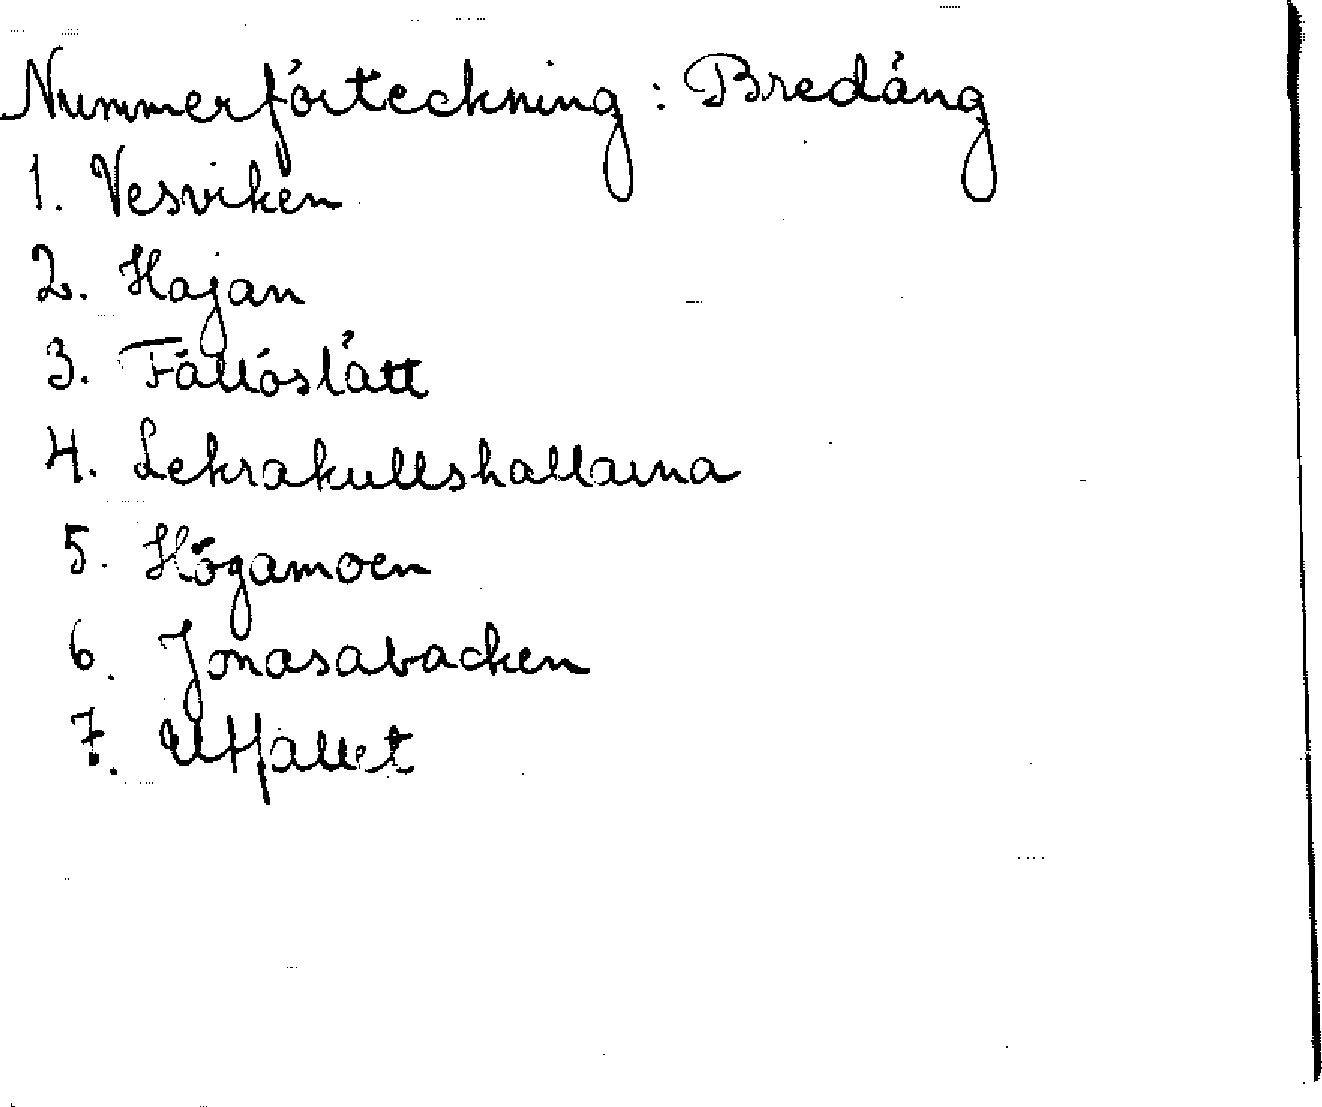 Nummerförteckning: Bredäng
1. Vesviken
2. Hajan
3. Fällöslätt
4. Lekrakullshallarna
5. Högamoen
6. Jonasabacken
7. Utfallet